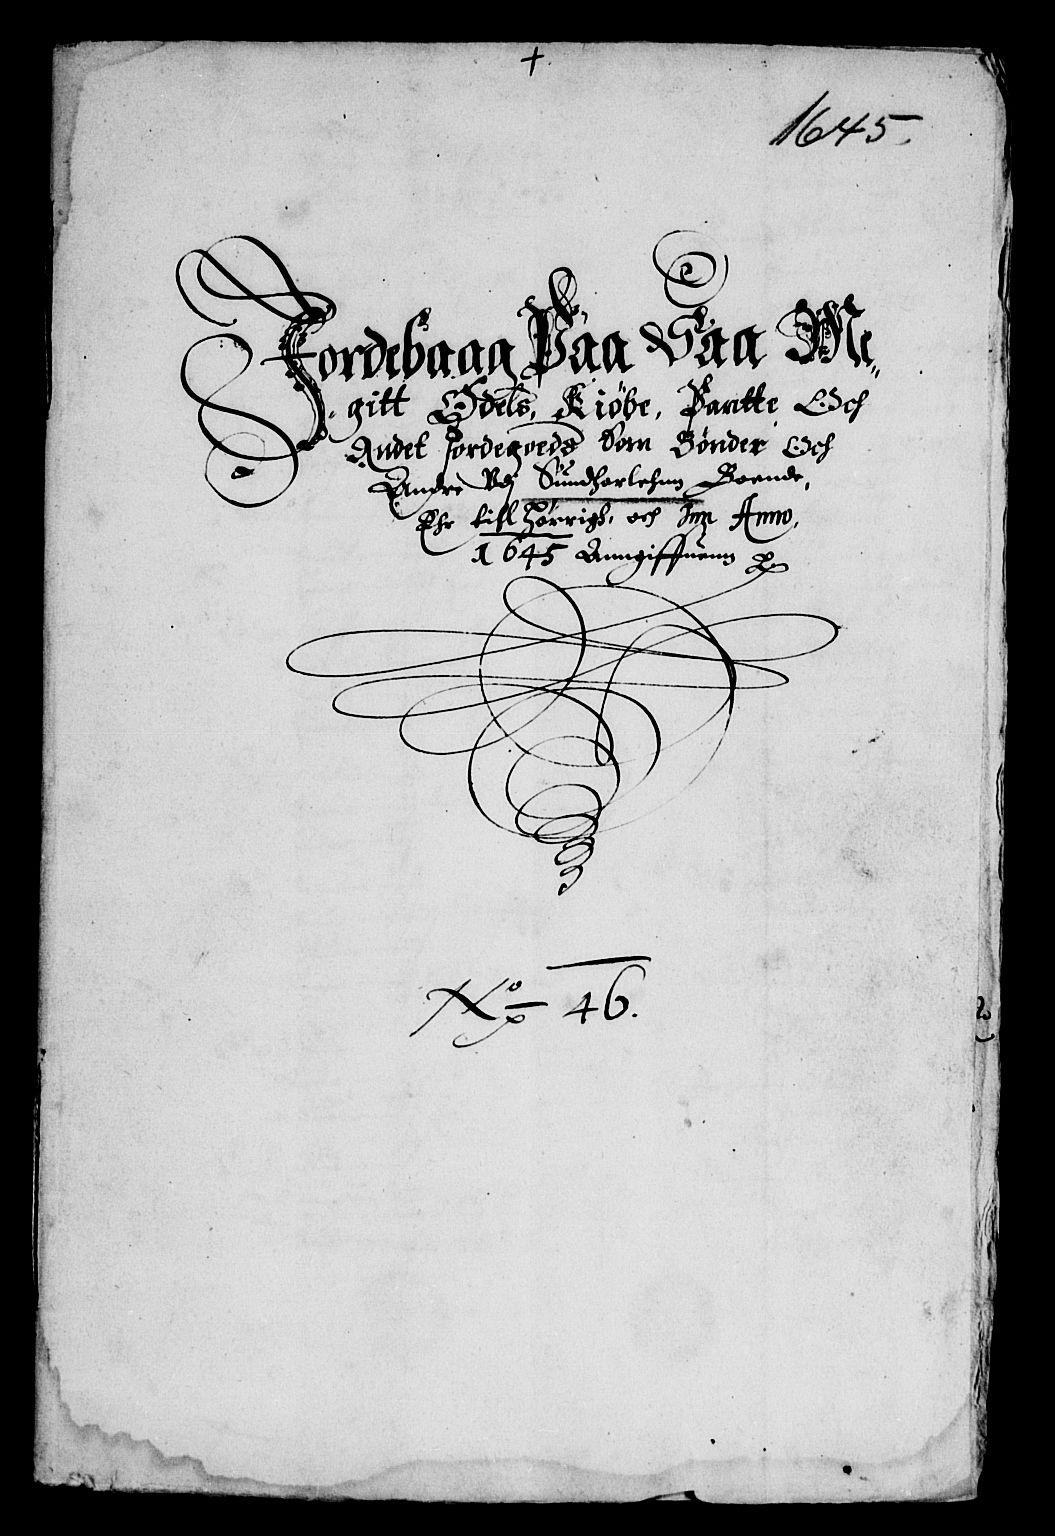 1645.
Jordebaag Paa Saa Me„
gitt Odels, Kiöbe, Pantte Och
Andet Jordegoeds Som Bönder Och
Andre Vdj Sundhorlehnn Boende,
Ehr till hörrigh, och Inn Anno,
1645 Anngiffuenn
No 46.